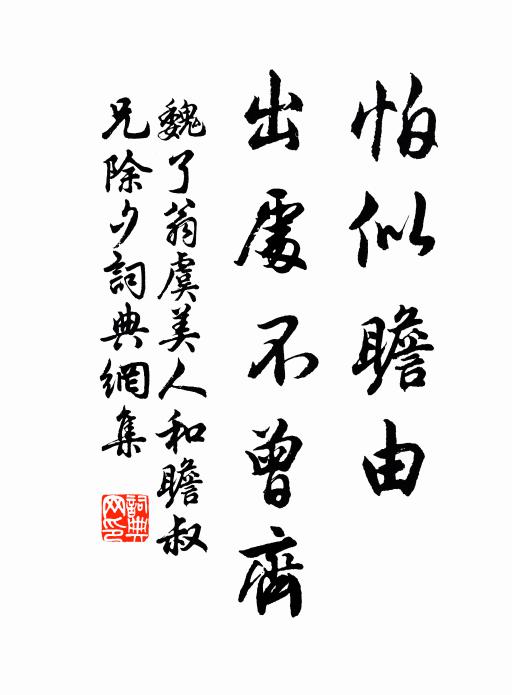 怕似瞻由
出處不曾齊
魏了翁虞美人和瞻叔
兄除夕詞典網集
詞典網印